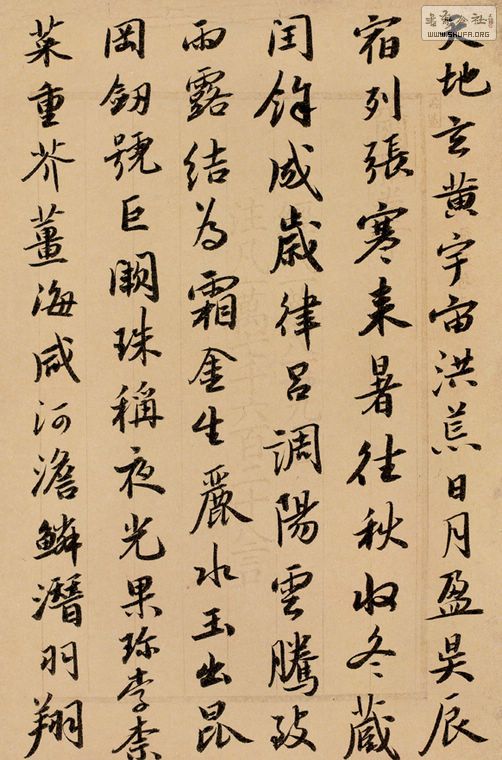 天地玄黄宇宙洪荒日月盈昃辰
宿列張寒来暑往秋收冬蔵
閏餘成歲律呂調陽雲騰致
雨露結為霜金生麗水玉出昆
岡劒號巨闕珠稱夜光果珎李柰
菜重芥薑海咸河澹鱗潛羽翔
WWW.SHUFA.ORG